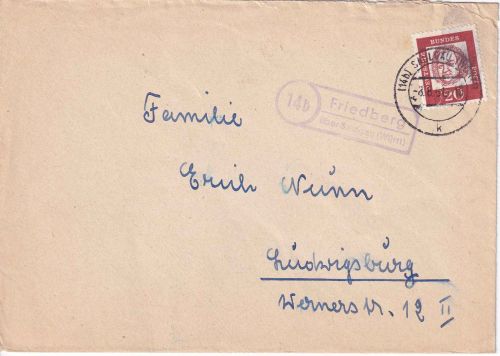 BUNDES
20
(14b) SAULGAU
k
14b
Friedberg
über Saulgau (Württ)
Familie
Erich Nunn
Ludwigsburg
Wernerstr. 12 II